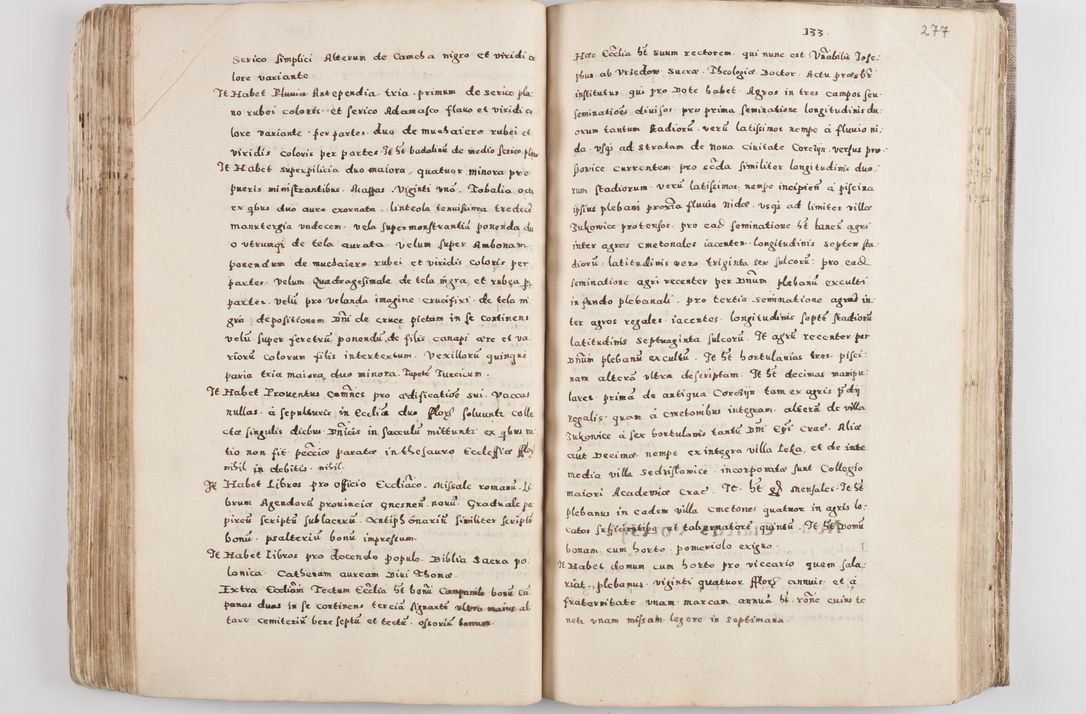 Serico simplici Alterum de Camcha nigro et viridi co
lore variante
It Habet Pluvia Antependia tria. primum de serico pla
no rubei coloris. et serico Adamasco flavo et viridi co
lore variante. per partes. duo de muchaiero rubei et
viridis coloris per partes. It ht badalinū de medio serico
It Habet superpilicia duo maiora, quatuor minora pro
pueris ministrantibus. Mappas. Viginti vnā. Tobalia. octo
ex qbus duo auro exornata. linteola tenuissima tredecī
manutergia vndecem. vela super monstrantiā ponenda du
o vtrumqȝ de tela aurata. velum super Ambonam
ponendum de muchaiero rubei et viridis coloris per
partes. velum Quadragesimale de tela nigra et rubea p
partes. velū pro velanda imagine crucifixi. de tela ni
gra depositionem Dnī de cruce pictam in se continens
velū super feretrū ponendū, de filis canapi ære et va
riorū colorum filis intertextum. Vexillorū quinque
paria tria maiora duo minora. Tapetē Turcicum.
It Habet Proventus comēs pro ædificatiōe sui. Vaccas
nullas. à sepulturis in Ecclīa duo flor solvuntr colle
ctæ singulis diebus Dnīcis in sacculū mittuntr ex qbus ra
tio non fit pecciæ paratæ in thesauro Ecclesiæ flor
nihil in debitis. nihil.
It Habet Libros pro officio Eccliāco. Missale romanū. li
brum Agendorū provinciæ gnesnen. novū. Graduale pa
pireū scriptū sub lacerū. Antiphonariū similiter scriptū
bonū. psalteriū bonū impressum.
It Habet Libros pro docendo populo. Biblia Sacra po
lonica. Cathenam auream Divi Thomæ.
Extra Eccliam Tectum Ecclīa ht bonū Campanile bonū Cā
panas duas in se continens terciā signantē ultra maius al
tare cemiteriū bene septū et tectū. ossoriū bonum.
133.
277
Hæc Ecclīa ht suum rectorem. qui nunc est Vnābilis Jose
phus ab Vrzedow Sacræ Theologiæ Doctor. Actu præsbr
institutus qui pro Dote habet. Agros in tres campos seu
seminationēs divisos. pro prima seminatione longitudinis du
orum tantum stadiorū. verū latissimos nempe à fluvio ni
da. vsqȝ ad stratam de nova Civitate Corczyn. versus pro
ssovice currentem. pro secda similiter longitudinis duo
rum stadiorum. verū latissimos. nempe incipien à piscina
ipsius plebani proxīa fluvio Nidæ. vsqȝ ad limites villæ
Zukowice protensos. pro ead seminatione ht laneū agri
inter agros cmetonales iacenten. longitudinis septem sta
diorū. latitudinis vero triginta sex sulcorū: pro ead
seminatione agri recenter per Dnūm plebanū exculti
in fundo plebanali. pro tertia seminatione agros in
ter agros regales. iacentes. longitudinis septē stadiorū
latitudinis septuaginta sulcorū. It agrū recenter per
Dnūm plebanū excultū. It ht hortulanias tres. pisci
nam alterā vltra descriptam. It ht decimas manipu
lares primā de antiqua Corczyn tam ex agris p
Regalis. quam à Cmetonibus integram. alterā de villa
Zukowice à sex hortulanis tantū Dnī Epī Crac. Aliæ
aut Decimæ nempe ex integra villa Leka, et de inte
media villa Sedzislawice. incorporatæ sunt Collegio
maiori Academiæ Crac. It. ht Mensales. It ht
plebanus in eadem villa Cmetones quatuor in agris lo
catos sufficientibq et tabernatorē quintū. It ht Domū
bonam cum horto. pomeriolo exiguo.
It Habet domum cum horto pro viccario quem sala
riat. plebanus. viginti quatuor flor annuis et à
fraternitate vnam marcam annuā ht. rōne cuius te
netr vnam missam legere in septimana.